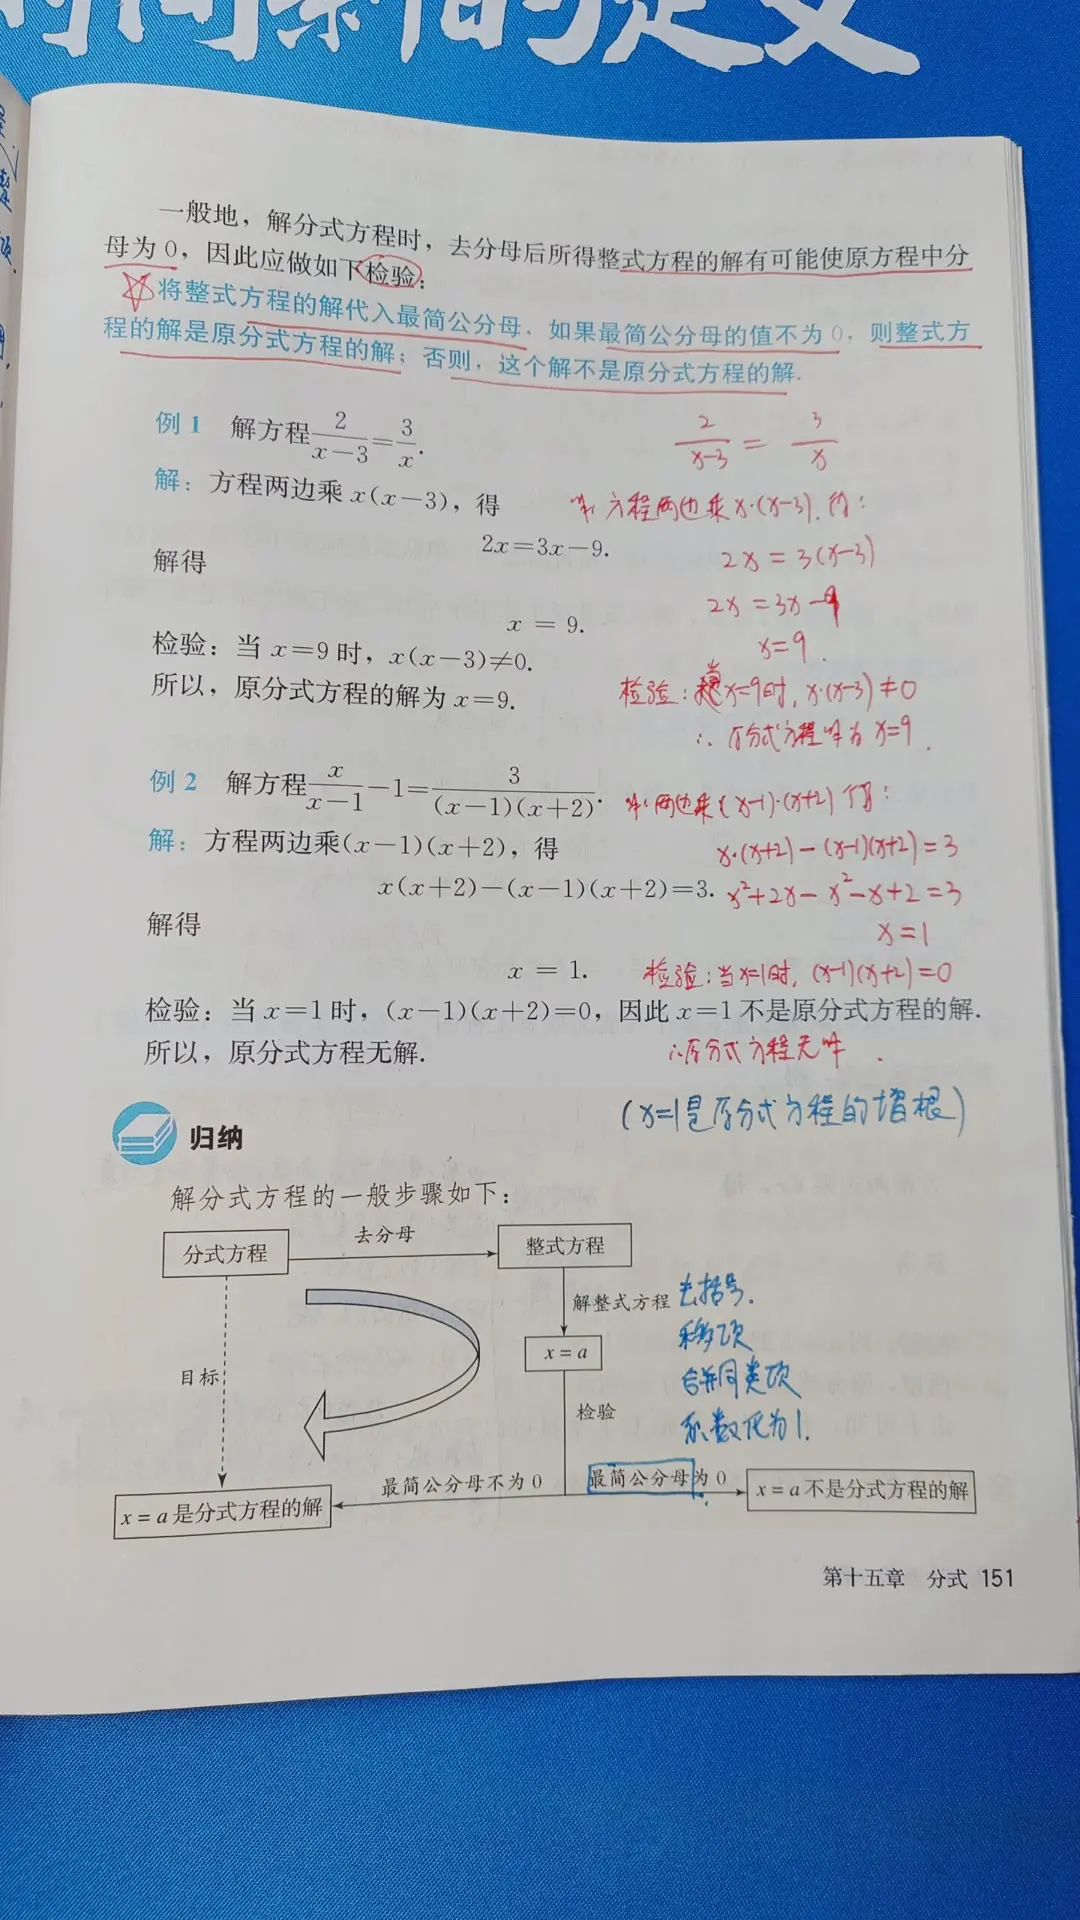 的问
的定义
一般地，解分式方程时，去分母后所得整式方程的解有可能使原方程中分
母为0，因此应做如下检验：
将整式方程的解代入最简公分母，如果最简公分母的值不为0，则整式方
程的解是原分式方程的解；否则，这个解不是原分式方程的解.
例1 解方程2/(x-3)=3/x.
2/(x-3) = 3/x
解：方程两边乘x(x-3)，得
解：方程两边乘x·(x-3).得：
2x=3x-9.
2x=3(x-3)
解得
2x=3x-9
x = 9.
x=9.
检验：当x=9时，x(x-3)≠0.
检验：当x=9时，x·(x-3)≠0
所以，原分式方程的解为x=9.
∴原分式方程解为x=9.
例2 解方程x/(x-1)-1=3/((x-1)(x+2)).
解：两边乘(x-1)·(x+2)得：
解：方程两边乘(x-1)(x+2)，得
x·(x+2)-(x-1)(x+2)=3
x(x+2)-(x-1)(x+2)=3.
x²+2x-x²-x+2=3
解得
x=1
x = 1.
检验：当x=1时，(x-1)(x+2)=0
检验：当x=1时，(x-1)(x+2)=0，因此x=1不是原分式方程的解.
所以，原分式方程无解.
∴原分式方程无解.
(x=1是原分式方程的增根)
归纳
解分式方程的一般步骤如下：
分式方程
去分母
整式方程
解整式方程
去括号.
移项
x=a
合并同类项
目标
检验
系数化为1.
最简公分母不为0
最简公分母为0
x=a是分式方程的解
x=a不是分式方程的解
第十五章 分式 151